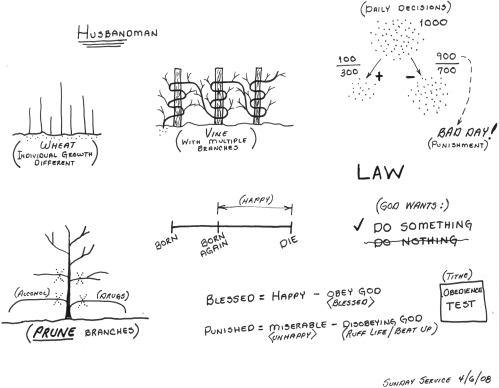 HUSBANDMAN
(DAILY DECISIONS)
1000
100
300
+
-
900
700
BAD DAY!
(PUNISHMENT)
WHEAT
(INDIVIDUAL GROWTH
DIFFERENT)
VINE
(WITH MULTIPLE
BRANCHES)
LAW
(GOD WANTS:)
✓ DO SOMETHING
DO NOTHING
(HAPPY)
BORN
BORN
AGAIN
DIE
(ALCOHOL)
(DRUGS)
(PRUNE BRANCHES)
BLESSED = HAPPY - OBEY GOD
<BLESSED>
PUNISHED = MISERABLE - DISOBEYING GOD
<UNHAPPY> (RUFF LIFE/BEAT UP)
(TITHE)
OBEDIENCE
TEST
SUNDAY SERVICE 4/6/08